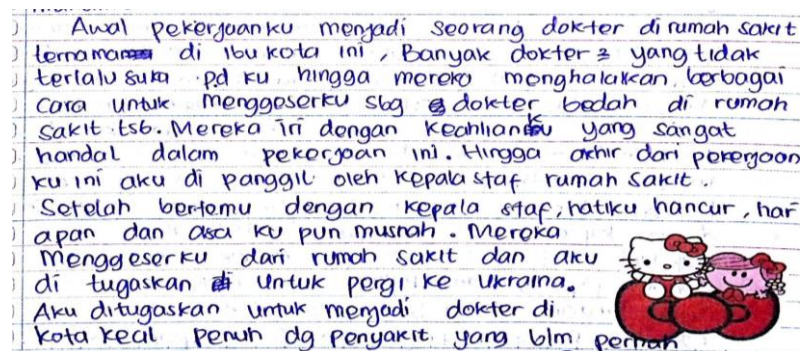 Awal pekerjaanku menjadi seorang dokter di rumah sakit
ternama di ibu kota ini, Banyak dokter2 yang tidak
terlalu suka pd ku hingga mereka menghalalkan berbagai
cara untuk menggeserku sbg dokter bedah di rumah
sakit tsb. Mereka iri dengan keahlianku yang sangat
handal dalam pekerjaan ini. Hingga akhir dari pekerjaan
ku ini aku di panggil oleh kepala staf rumah sakit.
Setelah bertemu dengan kepala staf, hatiku hancur, har
apan dan asa ku pun musnah. Mereka
menggeserku dari rumah sakit dan aku
di tugaskan untuk pergi ke Ukraina.
Aku ditugaskan untuk menjadi dokter di
kota kecil penuh dg penyakit yang blm pernah